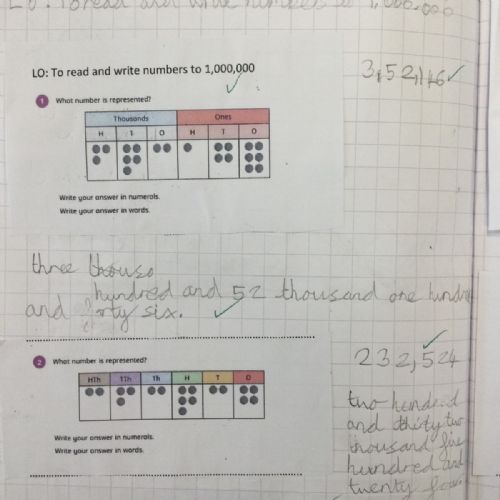 LO: To read and write numbers to 1,000,000
LO: To read and write numbers to 1,000,000
3,52,146
1 What number is represented?
Thousands Ones
H T O H T O
Write your answer in numerals.
Write your answer in words.
three thouso
hundred and 52 thousand one hundred
and forty six.
2 What number is represented?
232,524
HTh TTh Th H T O
two hundred
and thirty two
thousand five
hundred and
twenty four
Write your answer in numerals.
Write your answer in words.